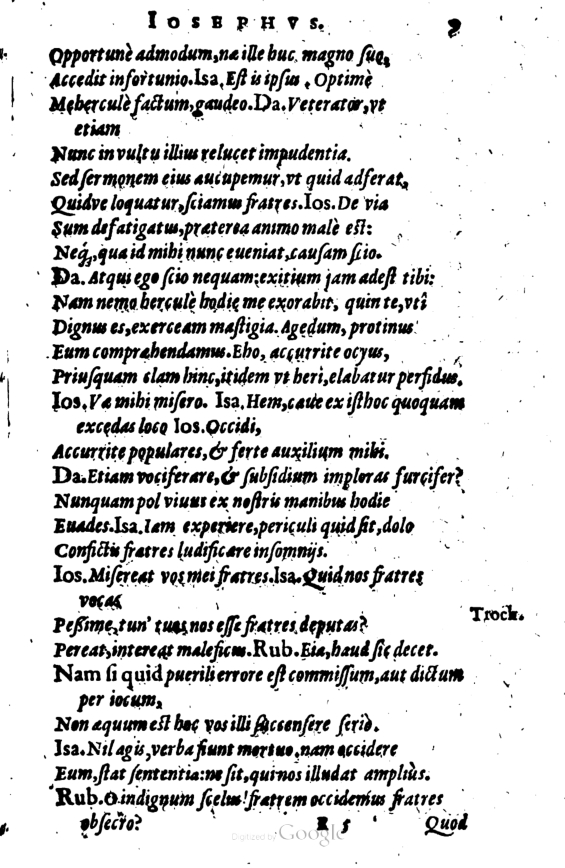 IOSEPHVS. 9
Opportunè admodum, næ ille huc magno suo,
Accedit infortunio. Isa. Est is ipsus. Optimè
Mehercule factum, gaudeo. Da. Veterator, vt
etiam
Nunc in vultu illius relucet impudentia.
Sed sermonem eius aucupemur, vt quid adferat,
Quidve loquatur, sciamus fratres. Ios. De via
Sum defatigatus, præterea animo malè est:
Neq́, qua id mihi nunc eueniat, causam scio.
Da. Atqui ego scio nequam: exitium jam adest tibi:
Nam nemo herculè hodie me exorabit, quin te, vti
Dignus es, exerceam mastigia. Agedum, protinus
Eum comprehendamus. Eho, accurrite ocyus,
Priusquam clam hinc, itidem vt heri, elabatur perfidus.
Ios. Væ mihi misero. Isa. Hem, caue ex isthoc quoquam
excedas loco Ios. Occidi,
Accurrite populares, & ferte auxilium mihi.
Da. Etiam vociferare, & subsidium imploras furcifer?
Nunquam pol viuus ex nostris manibus hodie
Euades. Isa. Iam experiere, periculi quid sit, dolo
Confictis fratres ludificare insomnijs.
Ios. Misereat vos mei fratres. Isa. Quid nos fratres
vocas
Trock.
Peßime, tun' tuas nos esse fratres deputas?
Pereat, intereat maleficus. Rub. Eia, haud sic decet.
Nam si quid puerili errore est commissum, aut dictum
per iocum,
Non æquum est hoc vos illi succensere seriò.
Isa. Nil agis, verba fiunt mortuo, nam occidere
Eum, stat sententia: ne sit, qui nos illudat ampliùs.
Rub. O indignum scelus! fratrem occidemus fratres
obsecro? R 5 Quod
Digitized by Google